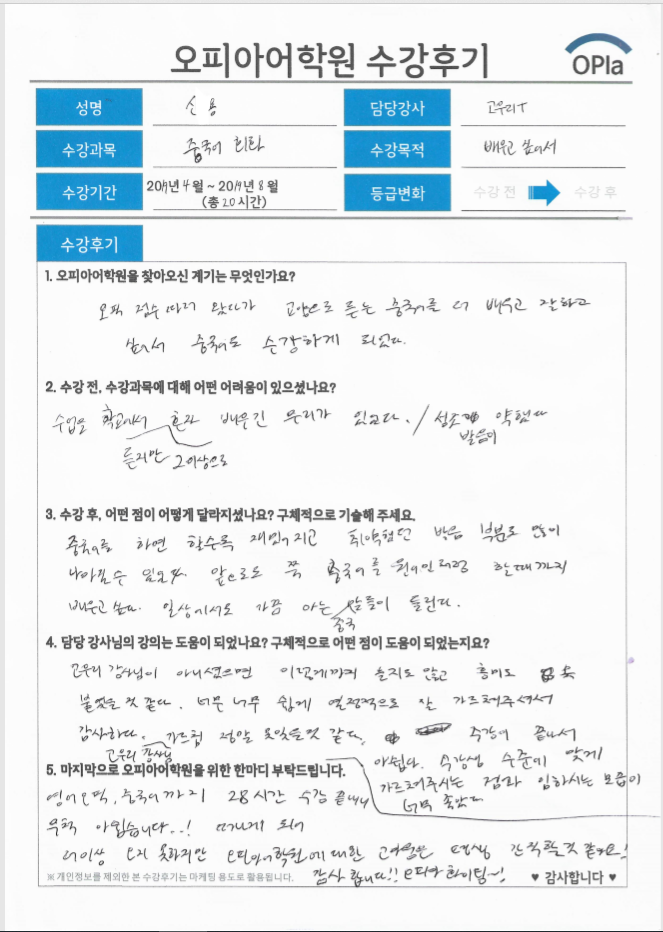 오피아어학원 수강후기
OPIa
성명 신용 담당강사 고우리T
수강과목 중국어 회화 수강목적 배우고 싶어서
수강기간 2019년 4월 ~ 2019년 8월 등급변화 수강 전 수강 후
(총 20 시간)
수강후기
1. 오피아어학원을 찾아오신 계기는 무엇인가요?
오픽 점수 따러 왔다가 교양으로 듣는 중국어를 더 배우고 잘하고
싶어서 중국어도 수강하게 되었다.
2. 수강 전, 수강과목에 대해 어떤 어려움이 있으셨나요?
수업을 학교에서 혼자 배우긴 무리가 있었다. / 성조 약했다
발음이
듣지만 그 이상으로
3. 수강 후, 어떤 점이 어떻게 달라지셨나요? 구체적으로 기술해 주세요.
중국어를 하면 할수록 재밌어지고 취약했던 발음 부분도 많이
나아질 수 있었다. 앞으로도 쭉 중국어를 원어민처럼 할 때까지
배우고 싶다. 일상에서도 가끔 아는 말들이 들린다.
중국
4. 담당 강사님의 강의는 도움이 되었나요? 구체적으로 어떤 점이 도움이 되었는지요?
고우리 강사님이 아니셨으면 이렇게까지 듣지도 않고 흥미도 못
붙였을 것 같다. 너무너무 쉽게 열정적으로 잘 가르쳐주셔서
감사하다. 가르침 정말 못잊을것 같다. 수강이 끝나서
고우리 강사님
아쉽다. 수강생 수준에 맞게
가르쳐주시는 점과 임하시는 모습이
너무 좋았다
5. 마지막으로 오피아어학원을 위한 한마디 부탁드립니다.
영어 오픽, 중국어까지 28시간 수강 끝내니
무척 아쉽습니다..! 떠나게 되어
더이상 오지 못하지만 오피아어학원에 대한 고마움은 평생 간직할것 같아요!
감사합니다!! 오피아 화이팅~!
※ 개인정보를 제외한 본 수강후기는 마케팅 용도로 활용됩니다. ♥ 감사합니다 ♥